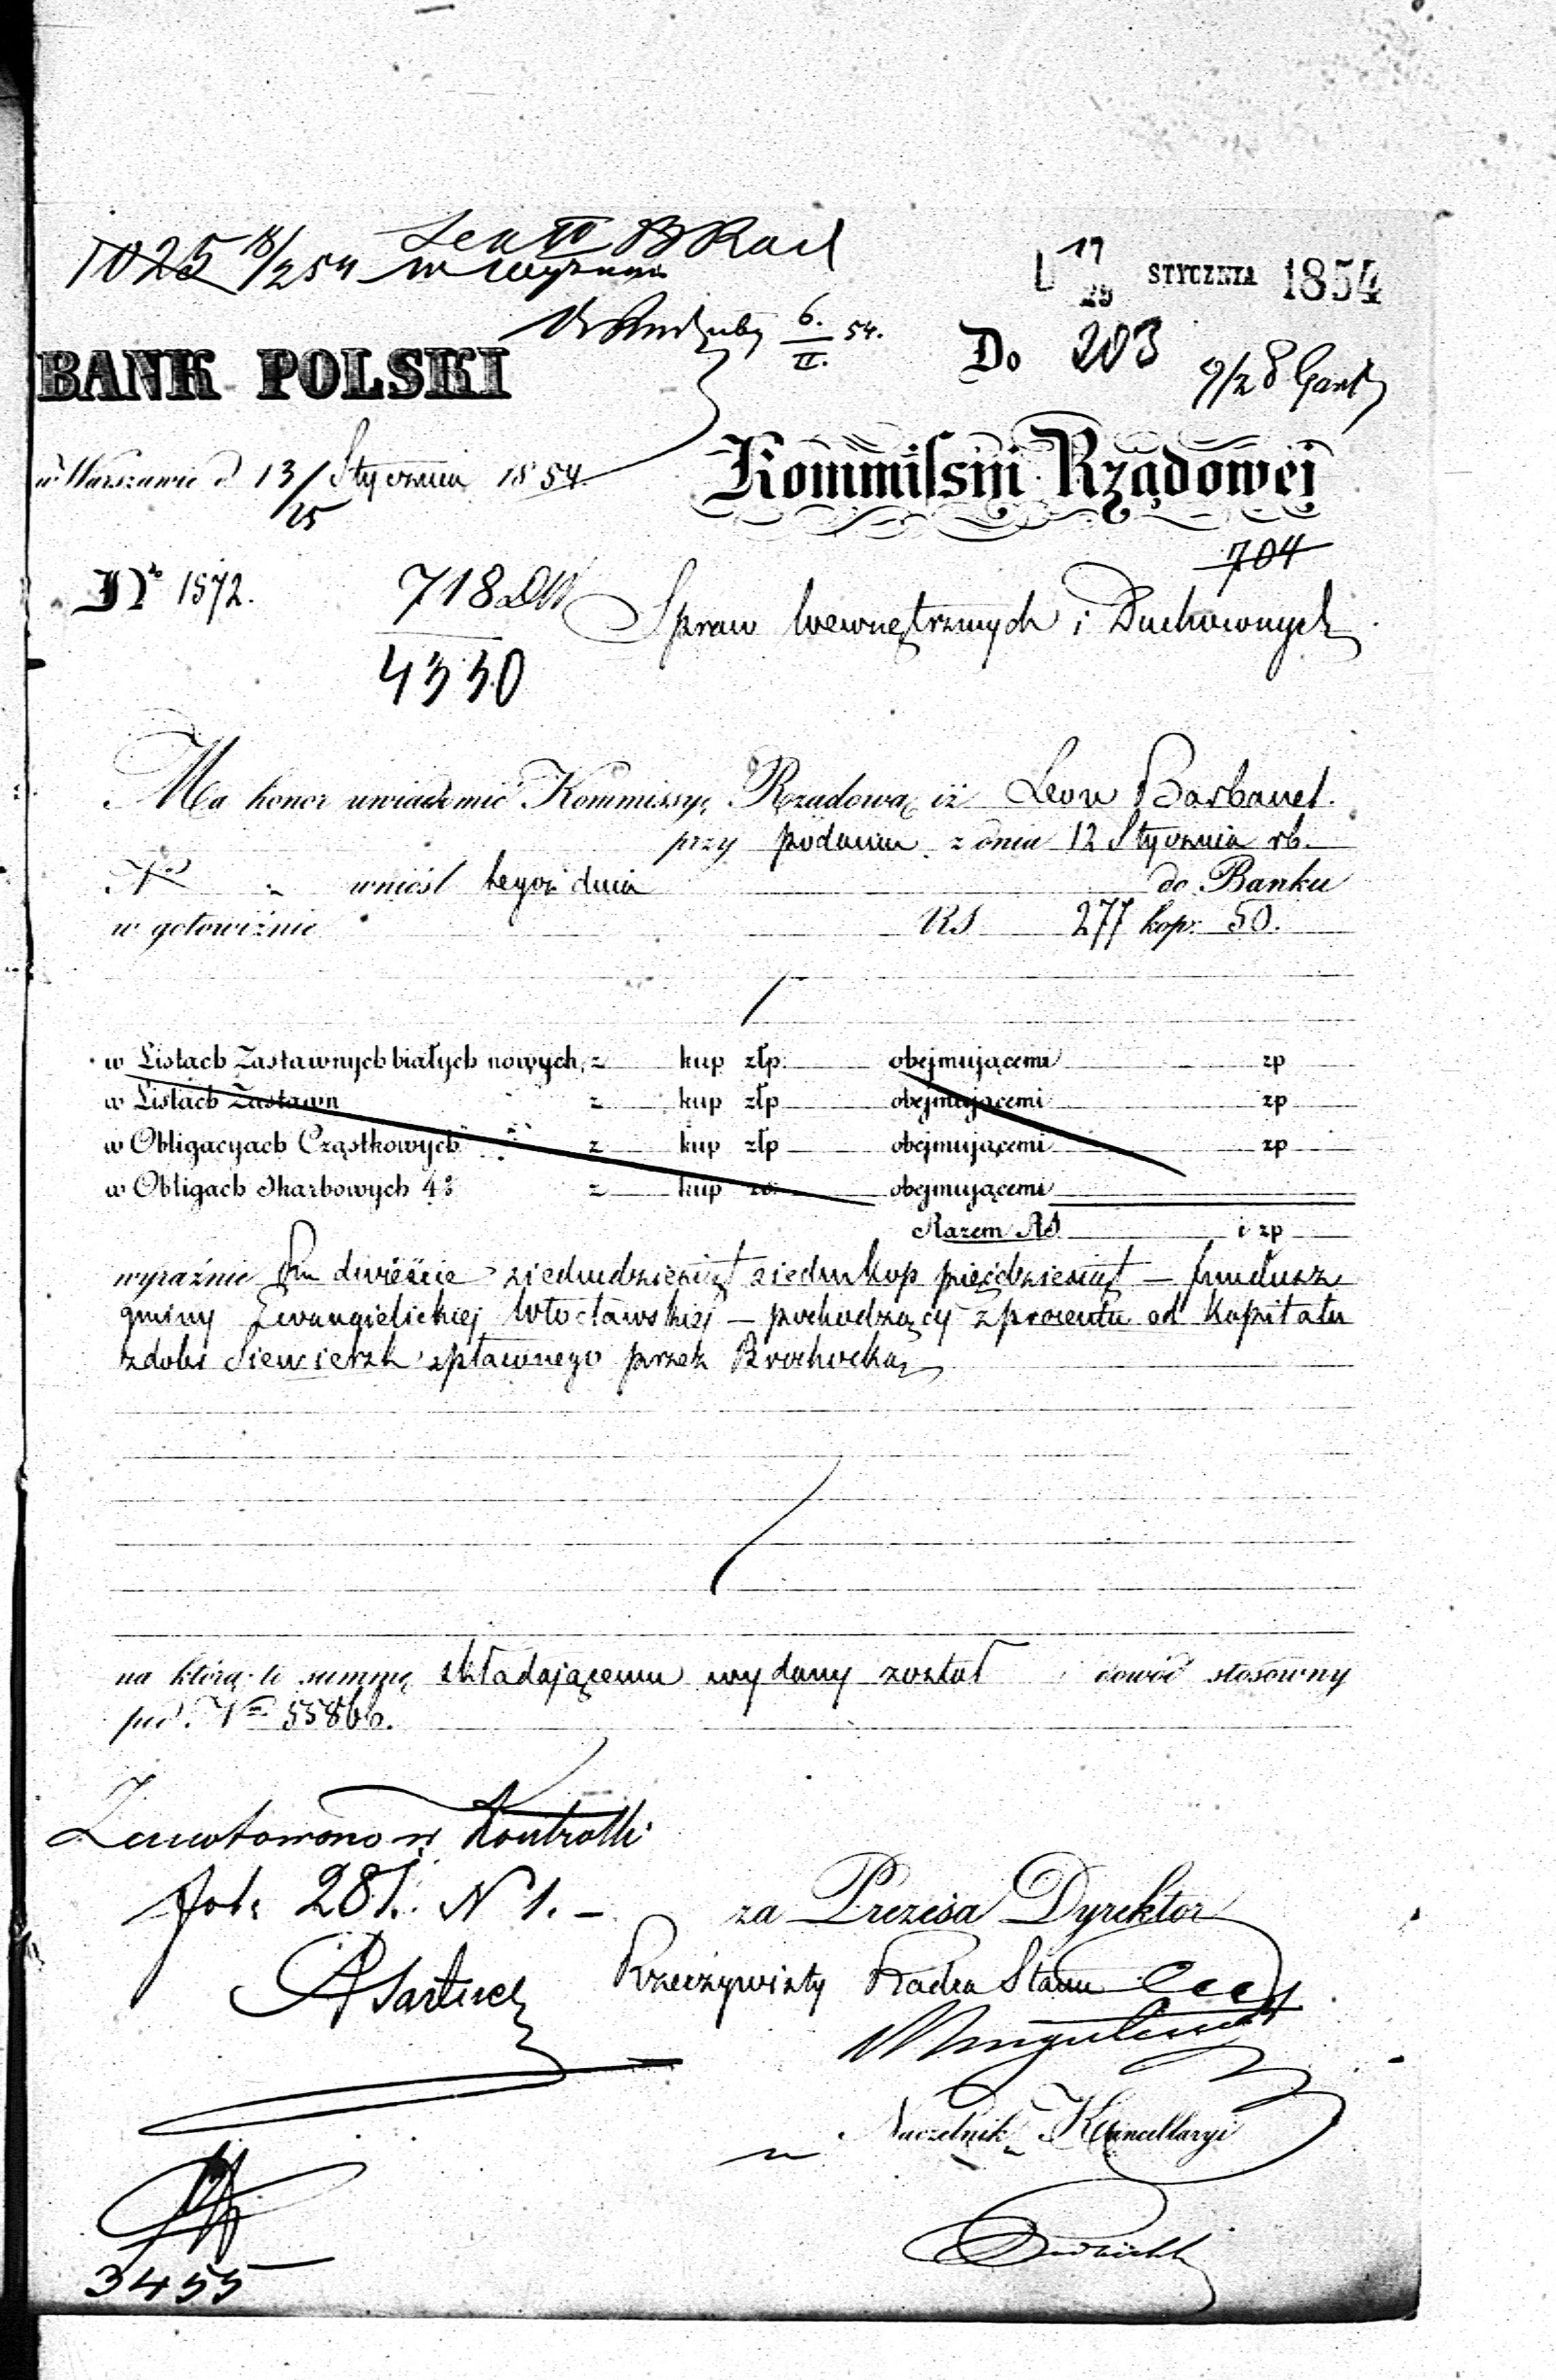 1025 18/2 54 w
6./II. 54.
17/29 STYCZNIA 1854
BANK POLSKI
Do 203
9/2 8
w Warszawie d 13/25 Stycznia 1854
Kommissyi Rządowej
704
Nr 1572. 718
4330
Spraw Wewnętrznych i Duchownych
Ma honor uwiadomić Kommissyę Rządową iż Leon Barbanel
przy podaniu z dnia 12 Stycznia rb.
No „ wniósł tegoż dnia do Banku
w gotowiźnie RS 277 kop: 50.
w Listach Zastawnych białych nowych, z kup złp. obejmującemi zp
w Listach Zastawn z kup złp obejmującemi zp
w Obligacyach Cząstkowych z kup złp obejmującemi zp
w Obligach Skarbowych 4% z kup zł. obejmującemi
Razem RS i zp
wyraźnie dwieście siedmdziesiąt siedm kop pięćdziesiąt — fundusz
gminy Ewangielickiej Włocławskiej — pochodzący z procentu od kapitału
z dobr spławnego przez Brochocką
na którą to summę składającemu wydany został dowód stosowny
pod No 55866.
Zanotowano w Kontrolli
fol: 281. N 1. –
za Prezesa Dyrektor
Rzeczywisty Radca Stanu
Naczelnik Kancellaryi
3455